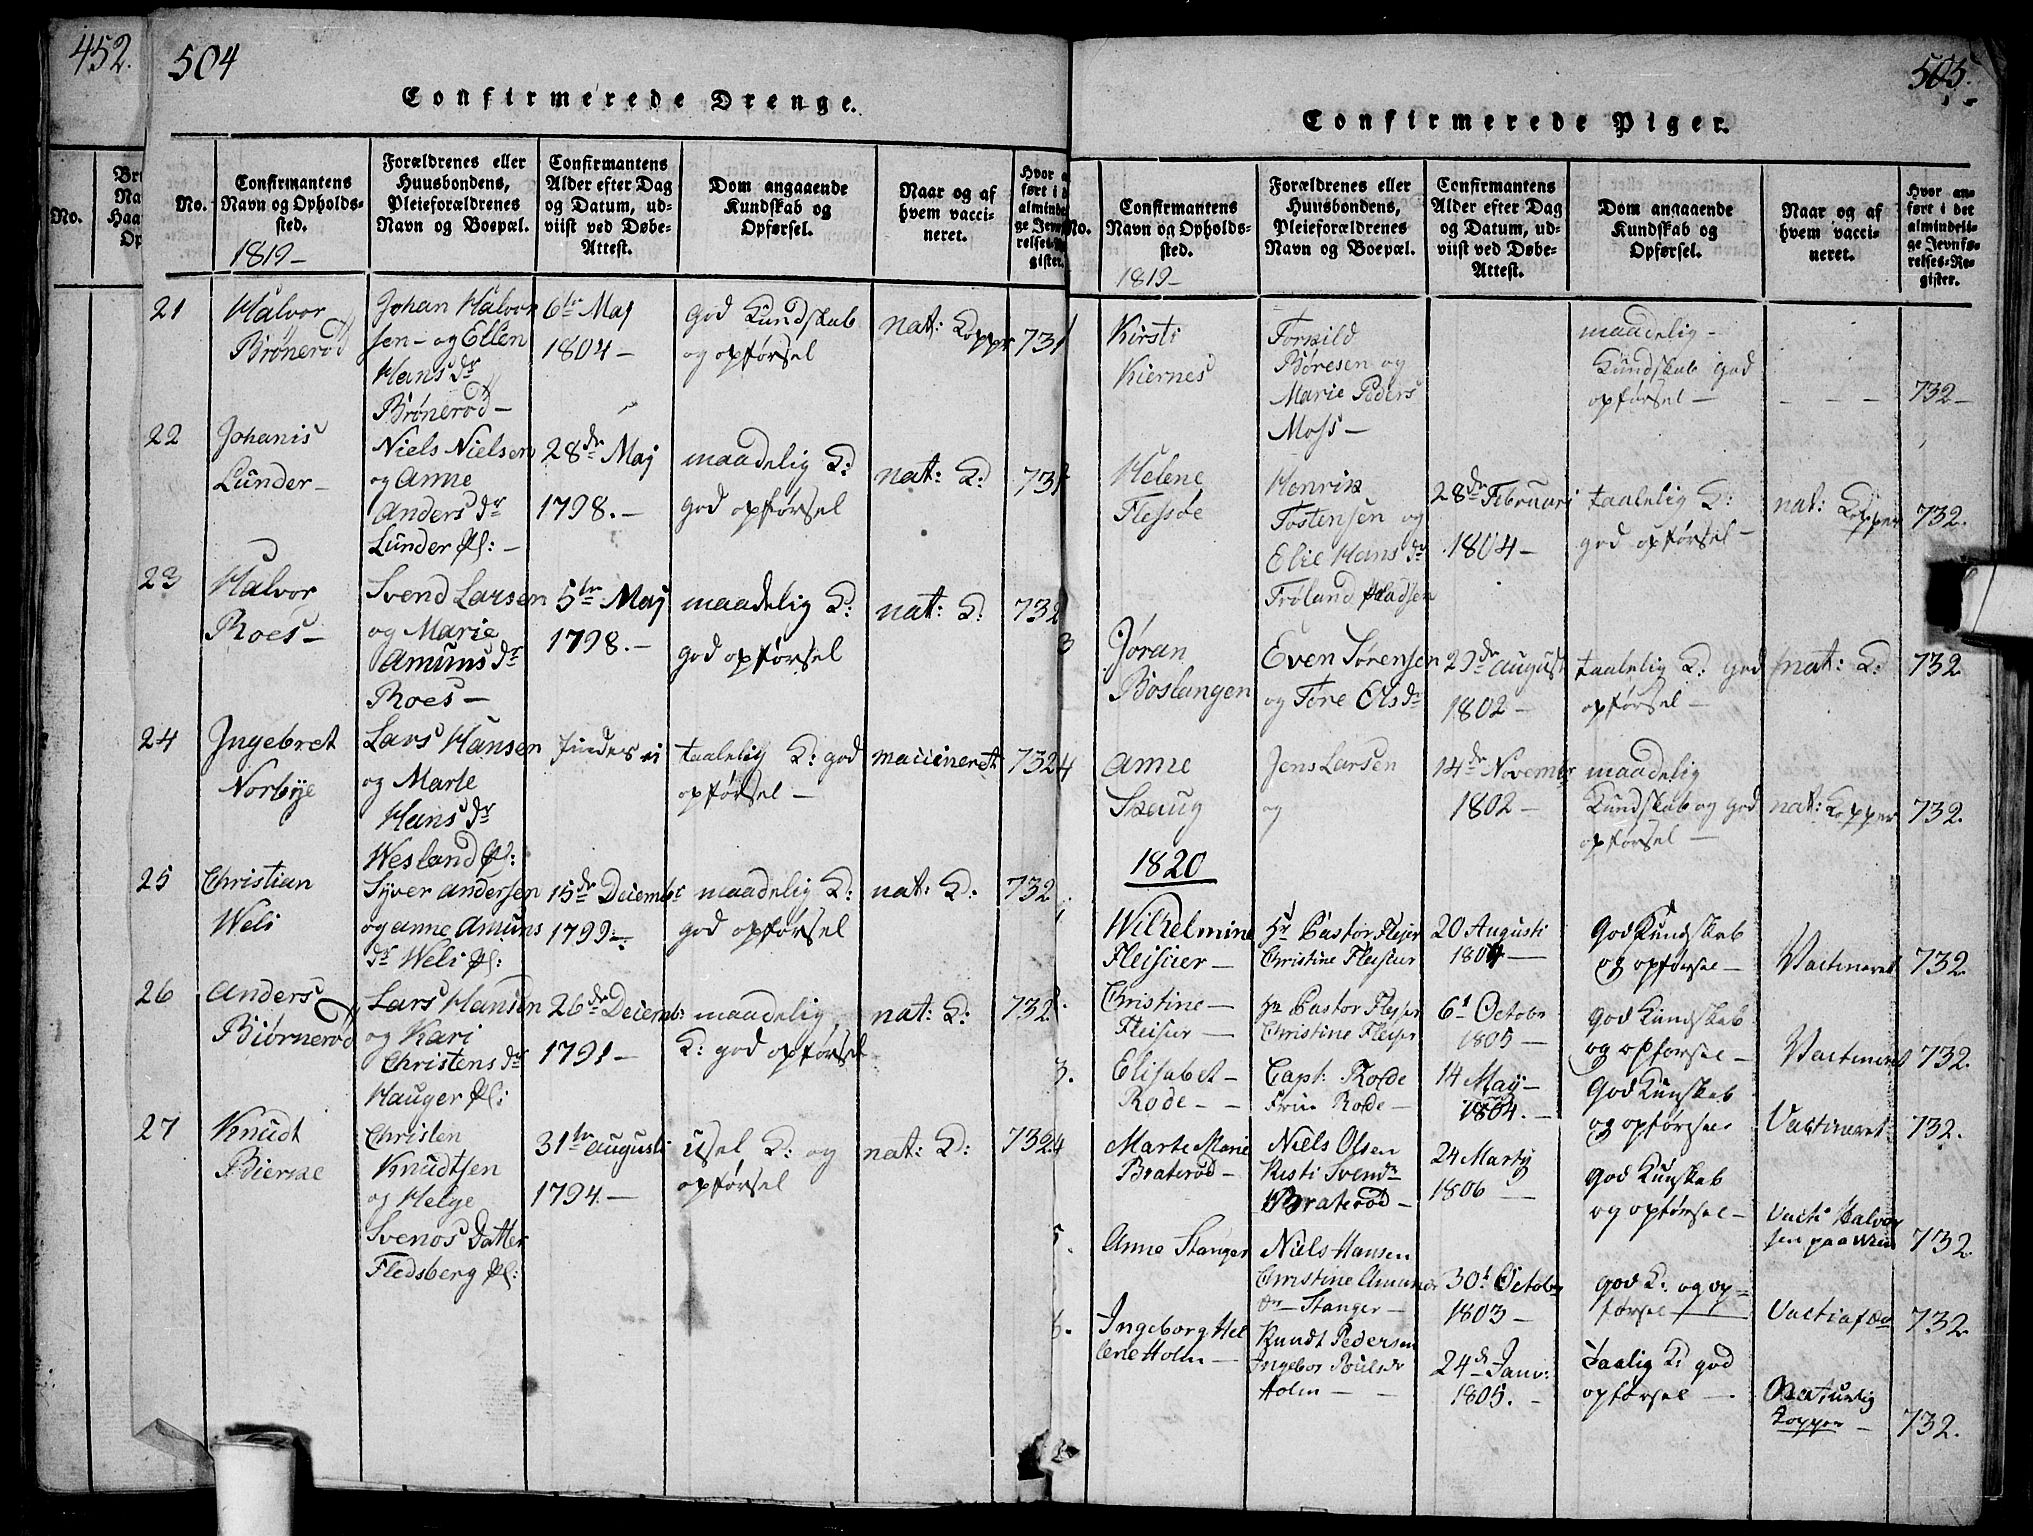 452.
504
Confirmerede Drenge.
No.
No.
Confirmantens Navn og Opholds-sted.
Forældrenes eller Huusbondens, Pleieforældrenes Navn og Boepæl.
Confirmantens Alder efter Dag og Datum, ud-viist ved Døbe-Attest.
Dom angaaende Kundskab og Opførsel.
Naar og af hvem vacci-neret.
1819-
21
Halvor
Brønerød
Johan Halvor
sen - og Ellen
Hans dr
Brønerød -
6te Maj
1804 -
god Kundskab
og opførsel
nat: Kopper
731
22
Johanis
Lunder -
Niels Nielsen
og Anne
Anders dr
Lunder Pl: -
28de Maj
1798. -
maadelig K:
god opførsel
nat: K:
731
23
Halvor
Roes -
Svend Larsen
og Marie
Amuns dr
Roes -
5te Maj
1798. -
maadelig K:
god opførsel
nat: K:
732
24
Ingebret
Norbye
Lars Hansen
og Marte
Hans dr
Wesland Pl:
findes ei
taalelig K: god
opførsel -
732
25
Christian
Weli
Syver Andersen
og Anne Amuns
dr Weli Pl:
15de Decembr
1799 -
maadelig K:
god opførsel
nat: K:
732
26
Anders
Biørnerød
Lars Hansen
og Kari
Christens dr
Hauger Pl:
26de Decemb:
1791 -
maadelig
K: god opførsel
nat: K:
732
27
Knudt
Bierke
Christen
Knudtsen
og Helge
Svends Datter
Fledsberg Pl:
31te Augusti
1794. -
usel K: og
opførsel
nat: K:
732
505.
Confirmerede Piger.
No.
Confirmantens Navn og Opholds-sted.
Forældrenes eller Huusbondens, Pleieforældrenes Navn og Boepæl.
Confirmantens Alder efter Dag og Datum, ud-viist ved Døbe-Attest.
Dom angaaende Kundskab og Opførsel.
Naar og af hvem vacci-neret.
Hvor an-ført i det almindeli-ge Jevnfø-relses-Re-gister.
1819-
1
Kirsti
Kiernes
Torkild
Børesen og
Marie Peders
Moss -
maadelig -
Kundskab god
opførsel -
- - -
732 -
Helene
Flessøe
Henrik
Tostensen og
Elie Hans dr
Frøland Pladsen
28de Februari
1804 -
taalelig K:
god opførsel -
nat: Kopper
732.
3
Jøran
Boslangen
Even Sørensen
og Tore Ols dr
29de August
1802 -
taalelig K: god
opførsel -
nat: K:
732
4
Anne
Skaug
Jens Larsen
og
14de Novembr
1802 -
maadelig
Kundskab og god
opførsel -
nat: Kopper
732.
1820
1
Wilhelmine
Fleischer -
Hr Pastor Fleiser
Christine Fleischer
20 Augusti
1804 -
God Kundskab
og opførsel -
Vaccineret
732
Christine -
Fleiser -
Hr Pastor Fleiser
Christine Fleiser
6t Octobr
1805 -
God Kundskab
og opførsel -
Vaccineret
732.
3.
Elisabet -
Rode - -
Capt: Rode
Frue Rode -
14 May -
1804. -
God Kunskab
og opførsel
Vaccineret
732.
4
Marte Marie
Braterød -
Niels Olsen
Kisti Svend dr
Braterød -
24 Martij
1806 -
God Kunskab
og opførsel -
Vacti Halvor
sen paa
732
5.
Anne Stanger
Niels Hansen
Christine Amuns
dr Stanger -
30t October
1803 -
God K: og op-
førsel -
732
6.
Ingeborg Hel
lene Holm -
Knudt Pedersen
Ingebor Pouls dr
Holm - -
24d Janv:
1805. -
Taalig K: god
opførsel -
Naturlig
Kopper -
732.